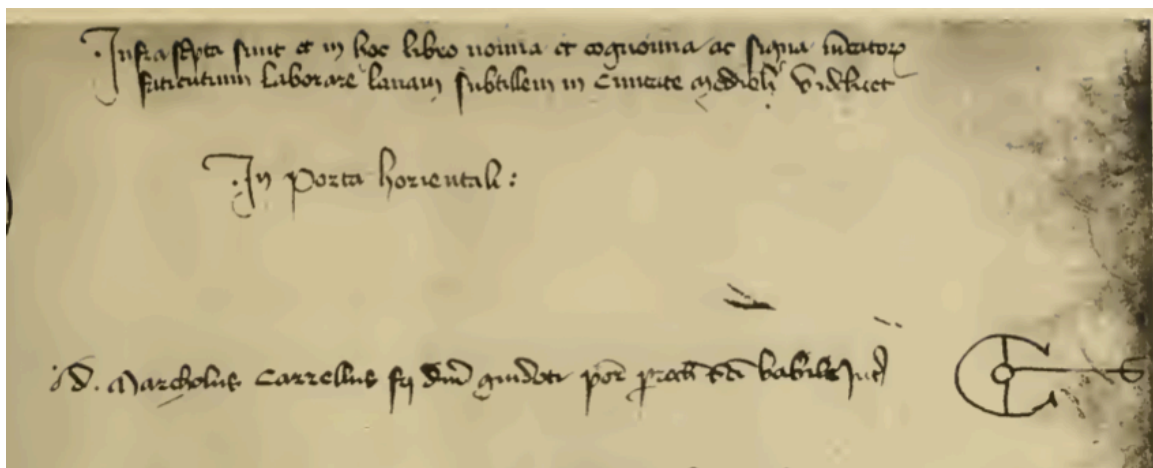 Infrascpta sunt et in hoc libro noĩa et cognoĩna ac signa mcator
faticntium laborare lanam subtillem in Civitate Medioli videlicet
In Porta horientali:
d. Marcholus Carrellus fq dm guidoti por